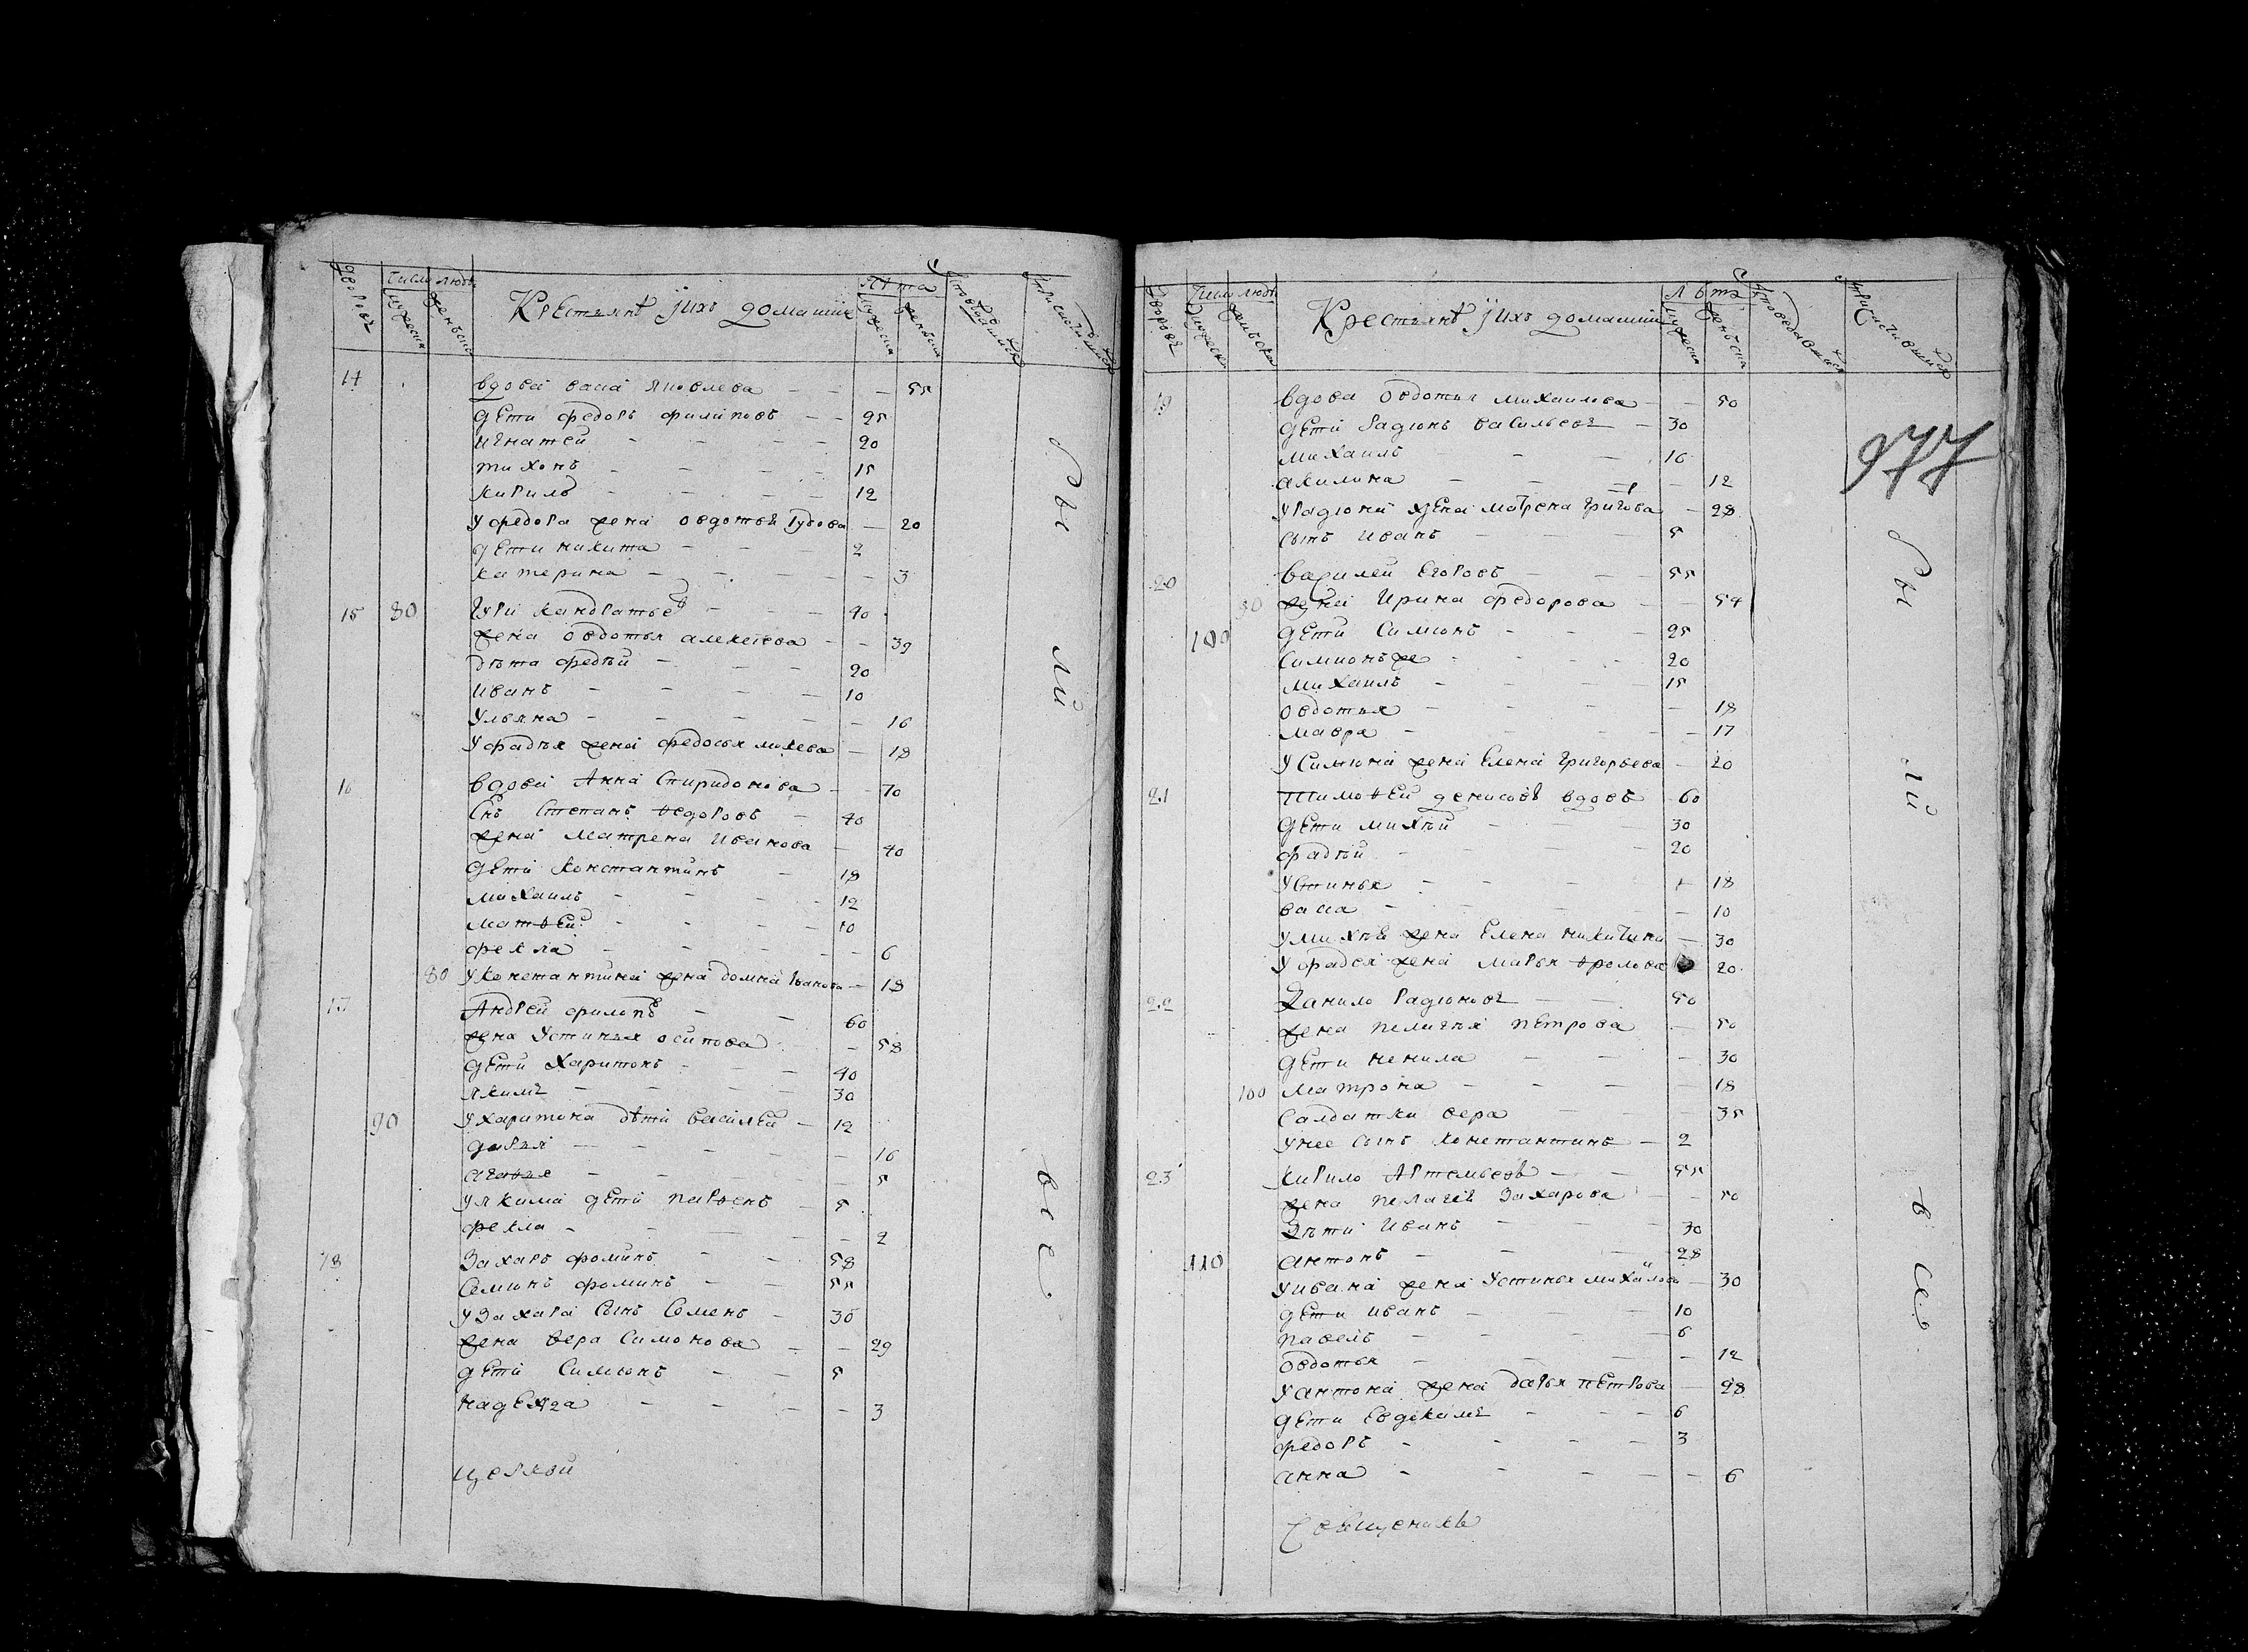 дворовъ
число люде
мужеска
женъска
Крестьянѣ ихъ домашнїе
лѣта
мужеска
женъска
исповедавшихся
причастившихся
14 вдова васа яковлева — — — 55
дети федоръ филиповъ — — 25
игнатей — — — — 20
тихонъ — — — — 15
кирилъ — — — — 12
у федора жена овдотья — 20
дети никита — — — 2
катерина — — — — — 3
15 80 гури кандратьевъ — — — 40
жена овдотья алексеева — — 39
дѣти фодѣй — — — 20
иванъ — — — — 10
ульяна — — — — — 16
у фадѣя жена федосья михева — 18
16 вдова Анна Спиридонова — — 70
Снъ Степанъ ѳедоровъ — 40
жена матрена иванова — 40
дети константинъ — 18
михаилъ — — — — 12
матѳей — — — — 10
фекла — — — — — 6
80 у констанътина жена домна иванова — 18
17 Андрей филипъ — — 60
жена устинья осипова — — 58
дети харитонъ — — — 40
якимъ — — — — 30
90 у харитона дѣти василей — 12
дарья — — — — — 16
агаѳья — — — — 5
у якима дети парѳенъ — 5
фекла — — — — — 2
18 Захаръ фоминъ — — 58
Семионъ фоминъ — — 55
у захара сынъ Семенъ — 30
жена вера симонова — — 29
дети Симионъ — — 5
надежда — — — — 3
церкви
ры
ли
все
дворовъ
число люде
мужеска
женъска
Крестьянѣ ихъ домашнии
лѣтъ
мужеска
женъска
исповедавшихся
причастившихся
177
19 вдова овдотья михаилова — — 50
дети радионъ васильевъ — 30
михаилъ — — — 16
акилина — — — — 12
у радиона жена матрена григова — 28
сынъ иванъ — — — 5
20 василей егоровъ — — — 55
90 жена ирина федорова — — 54
100 дети Симионъ — — — 25
Симионъ же — — — 20
михаилъ — — — — 15
овдотья — — — — 18
мавра — — — — 17
у Симиона жена елена григорьева — 20
21 тимоѳей денисовъ вдовъ — 60
дети михѣй — — — 30
фадѣй — — — — 20
устинья — — — — 18
васа — — — — — 10
у михѣя жена елена никитина — 30
у фадея жена марья ѳролова 20
22 данило радионовъ — — 50
жена пелагѣя петрова — 50
дети ненила — — — 30
100 матрона — — — — 18
салдатки вера — — — 35
у нее сынъ констаньтинъ — 2
23 кирило Артемьевъ — — 55
жена пелагея захарова — — 50
дѣти иванъ — — — 30
110 антонъ — — — — 28
у ивана жена устинья михаилова — 30
дети иванъ — — — 10
павелъ — — — — 6
овдотья — — — — 12
у антона жена дарья петрова — 28
дети евдокимъ — — — 6
федоръ — — — — 3
анна — — — — — 6
Священикъ
ры
ли
всь